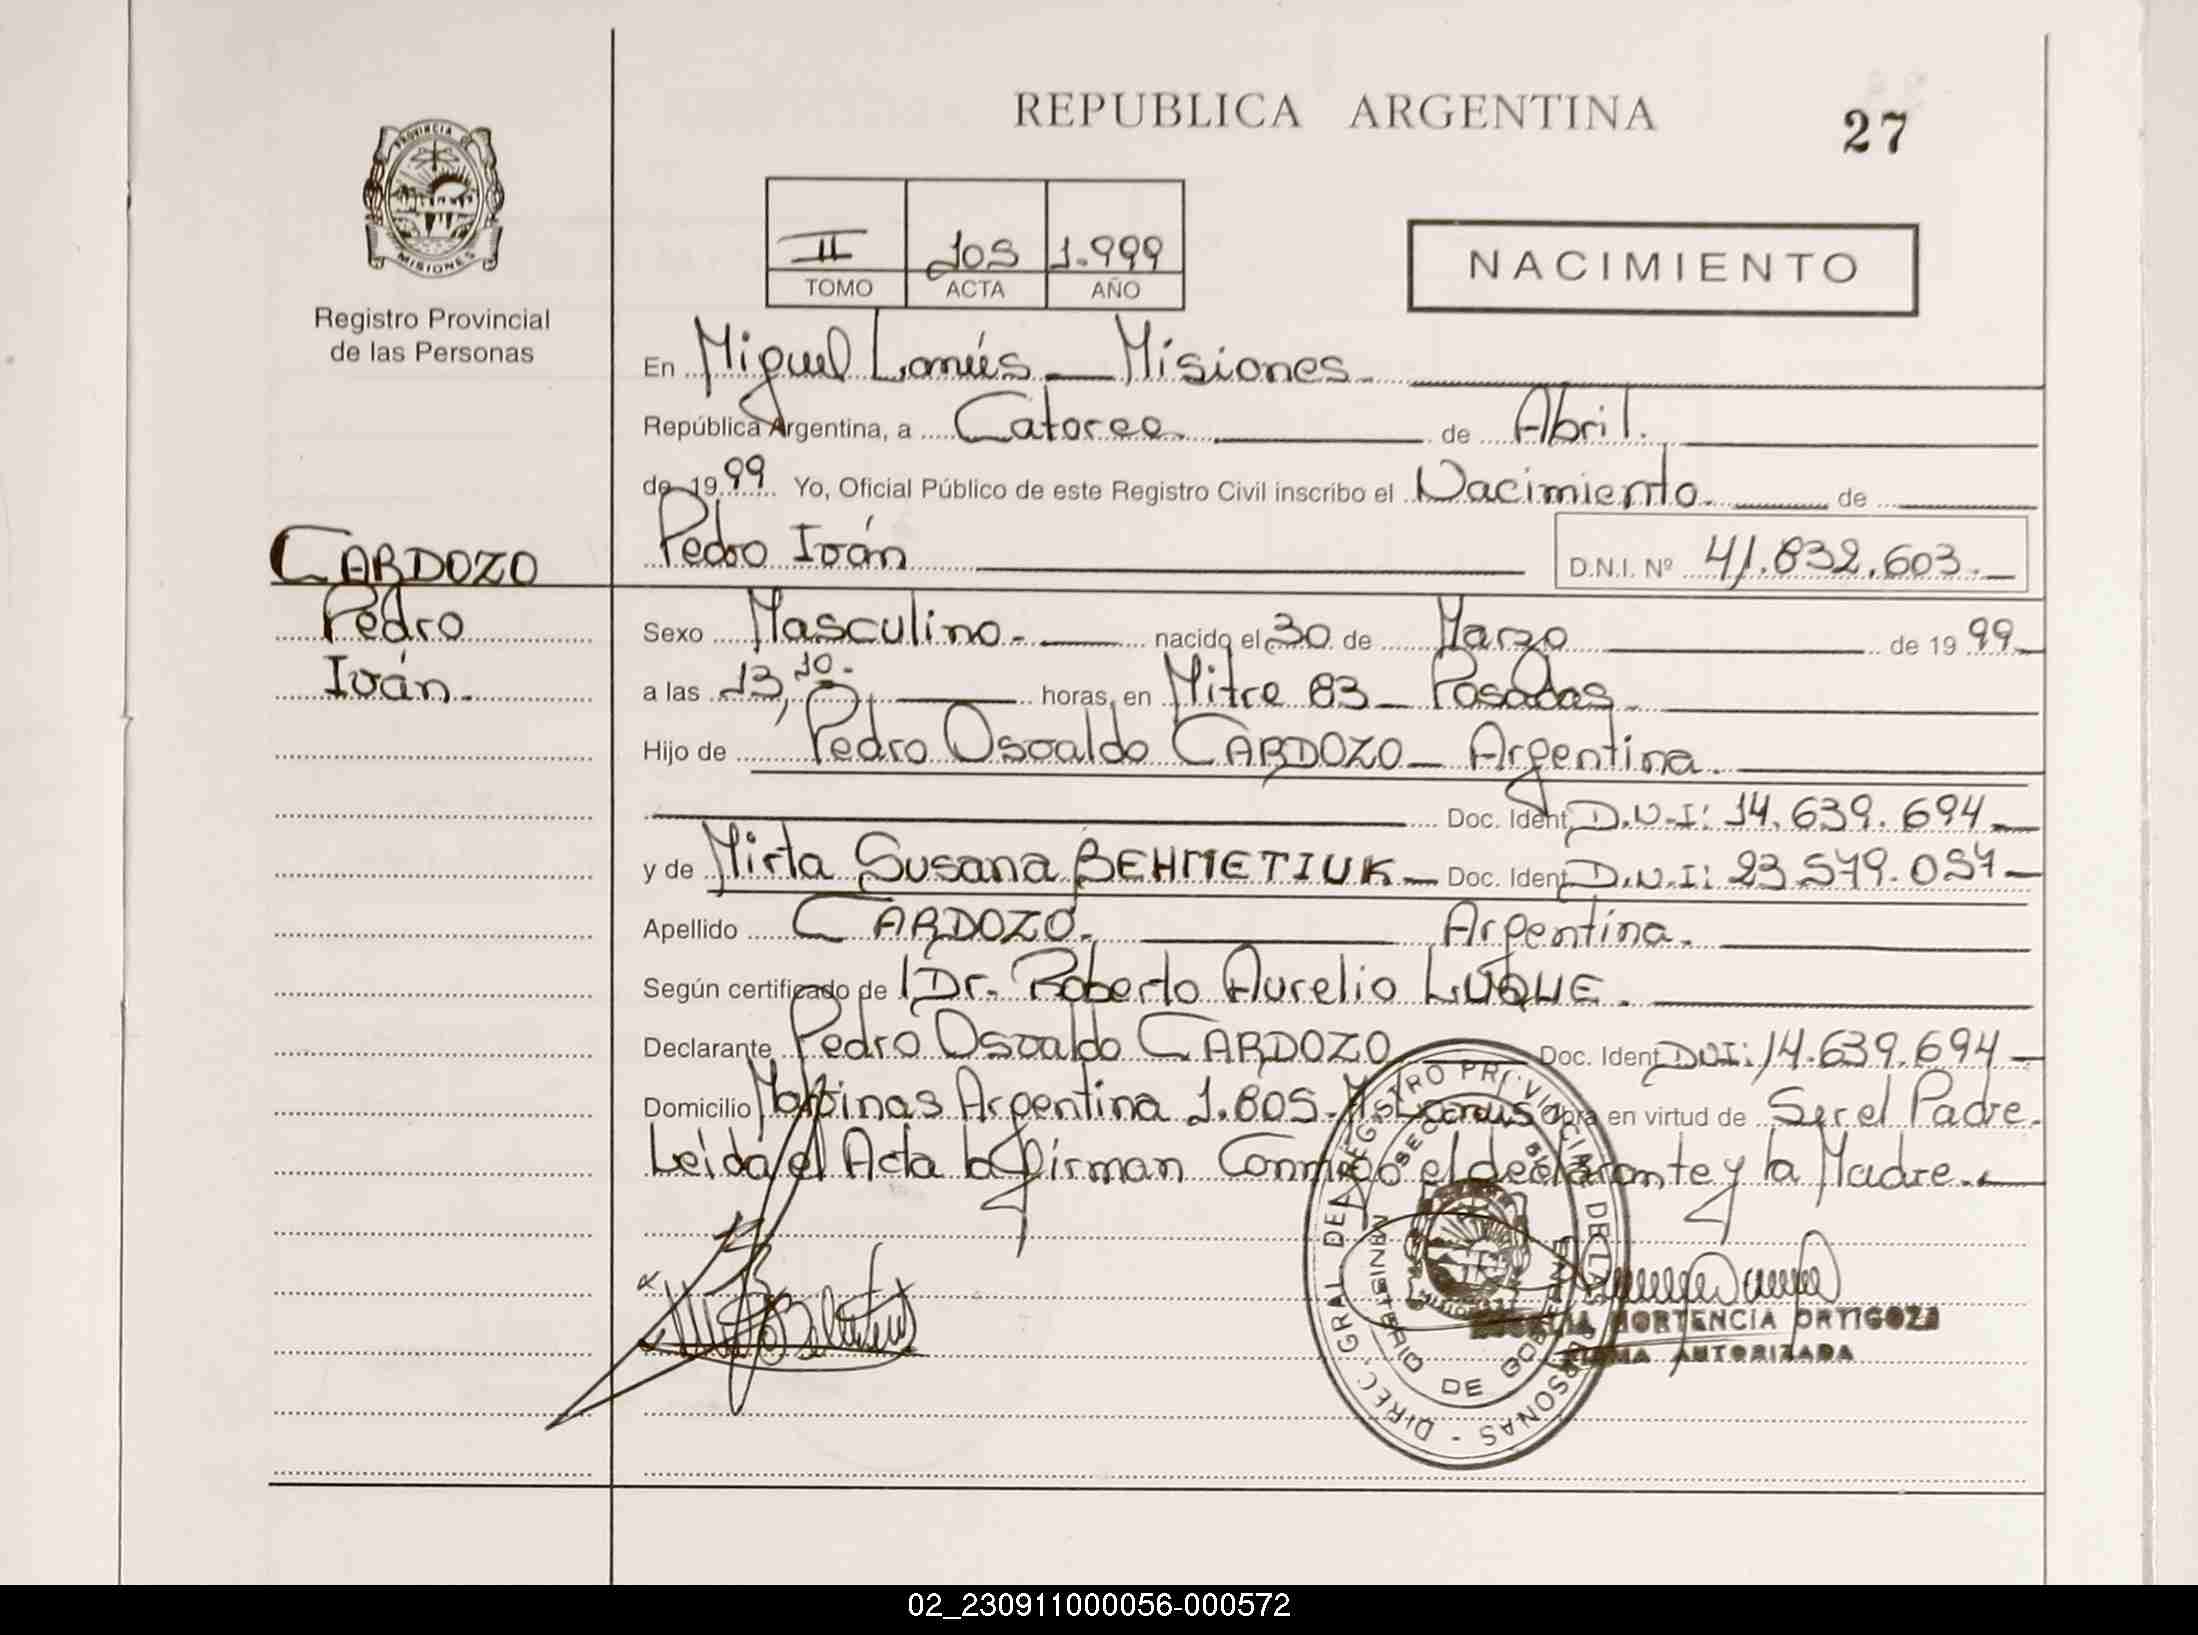 REPUBLICA ARGENTINA
27
PROVINCIA DE
MISIONES
Registro Provincial
de las Personas
II 105 1.999
TOMO ACTA AÑO
NACIMIENTO
En Miguel Lanús - Misiones.
República Argentina, a Catorce de Abril.
de 1999 Yo, Oficial Público de este Registro Civil inscribo el Nacimiento. de
Pedro Iván D.N.I. Nº 41.832.603.
CARDOZO
Pedro
Iván.
Sexo Masculino. nacido el 30 de Marzo de 1999
a las 13,10. horas, en Mitre 83 - Posadas.
Hijo de Pedro Osvaldo CARDOZO - Argentina.
Doc. Ident D.N.I: 14.639.694
y de Mirta Susana BEHMETIUK - Doc. Ident D.N.I: 23.579.057
Apellido CARDOZO. Argentina.
Según certificado de Dr. Roberto Aurelio LUQUE.
Declarante Pedro Osvaldo CARDOZO Doc. Ident DNI: 14.639.694
Domicilio Malvinas Argentina 1.805. M. Lanús obra en virtud de Ser el Padre.
Leida el Acta la firman Conmigo el declarante y la Madre.
DIREC. GRAL DEL REGISTRO PROVINCIAL DE LAS PERSONAS -
MINISTERIO DE GOBIERNO
HORTENCIA ORTIGOZA
FIRMA AUTORIZADA
02_230911000056-000572